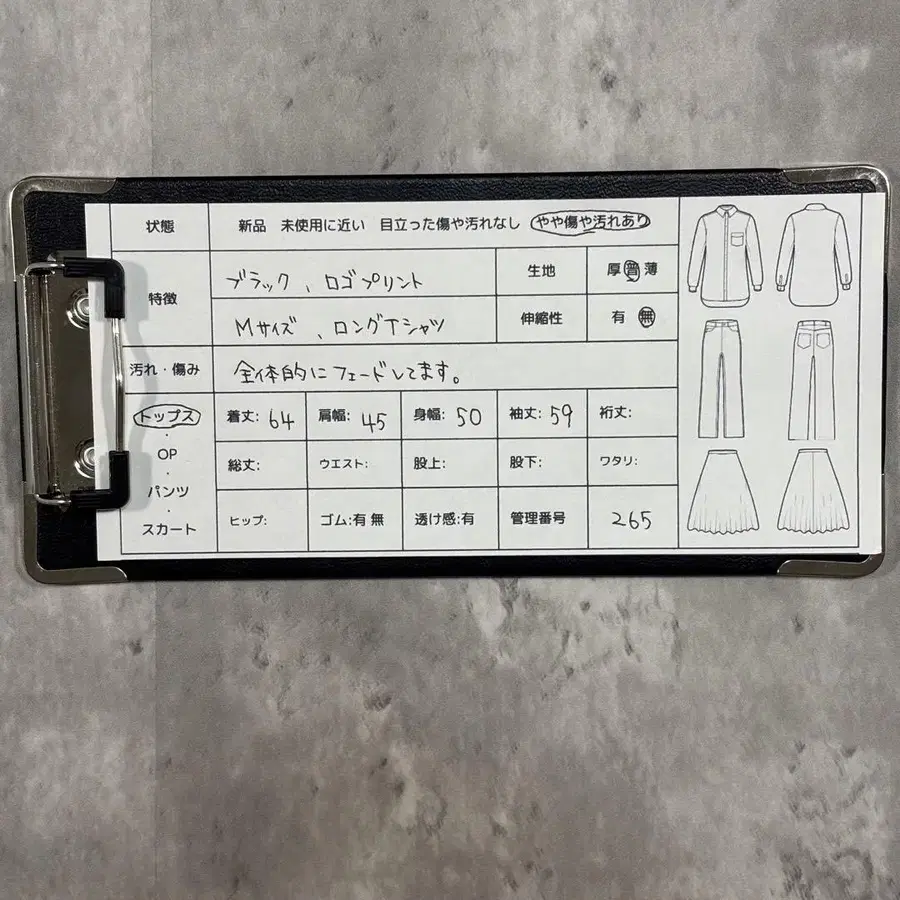 状態 新品 未使用に近い 目立った傷や汚れなし やや傷や汚れあり
特徴 ブラック、ロゴプリント 生地 厚 普 薄
Mサイズ、ロングTシャツ 伸縮性 有 無
汚れ・傷み 全体的にフェードしてます。
トップス 着丈: 64 肩幅: 45 身幅: 50 袖丈: 59 裄丈:
・
OP 総丈: ウエスト: 股上: 股下: ワタリ:
・
パンツ
・
スカート ヒップ: ゴム:有 無 透け感:有 管理番号 265